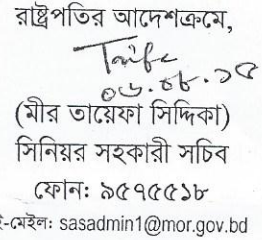 রাষ্ট্রপতির আদেশক্রমে,
০৬.০৮.১৫
(মীর তায়েফা সিদ্দিকা)
সিনিয়র সহকারী সচিব
ফোন: ৯৫৭৫৫১৮
ই-মেইল: sasadmin1@mor.gov.bd